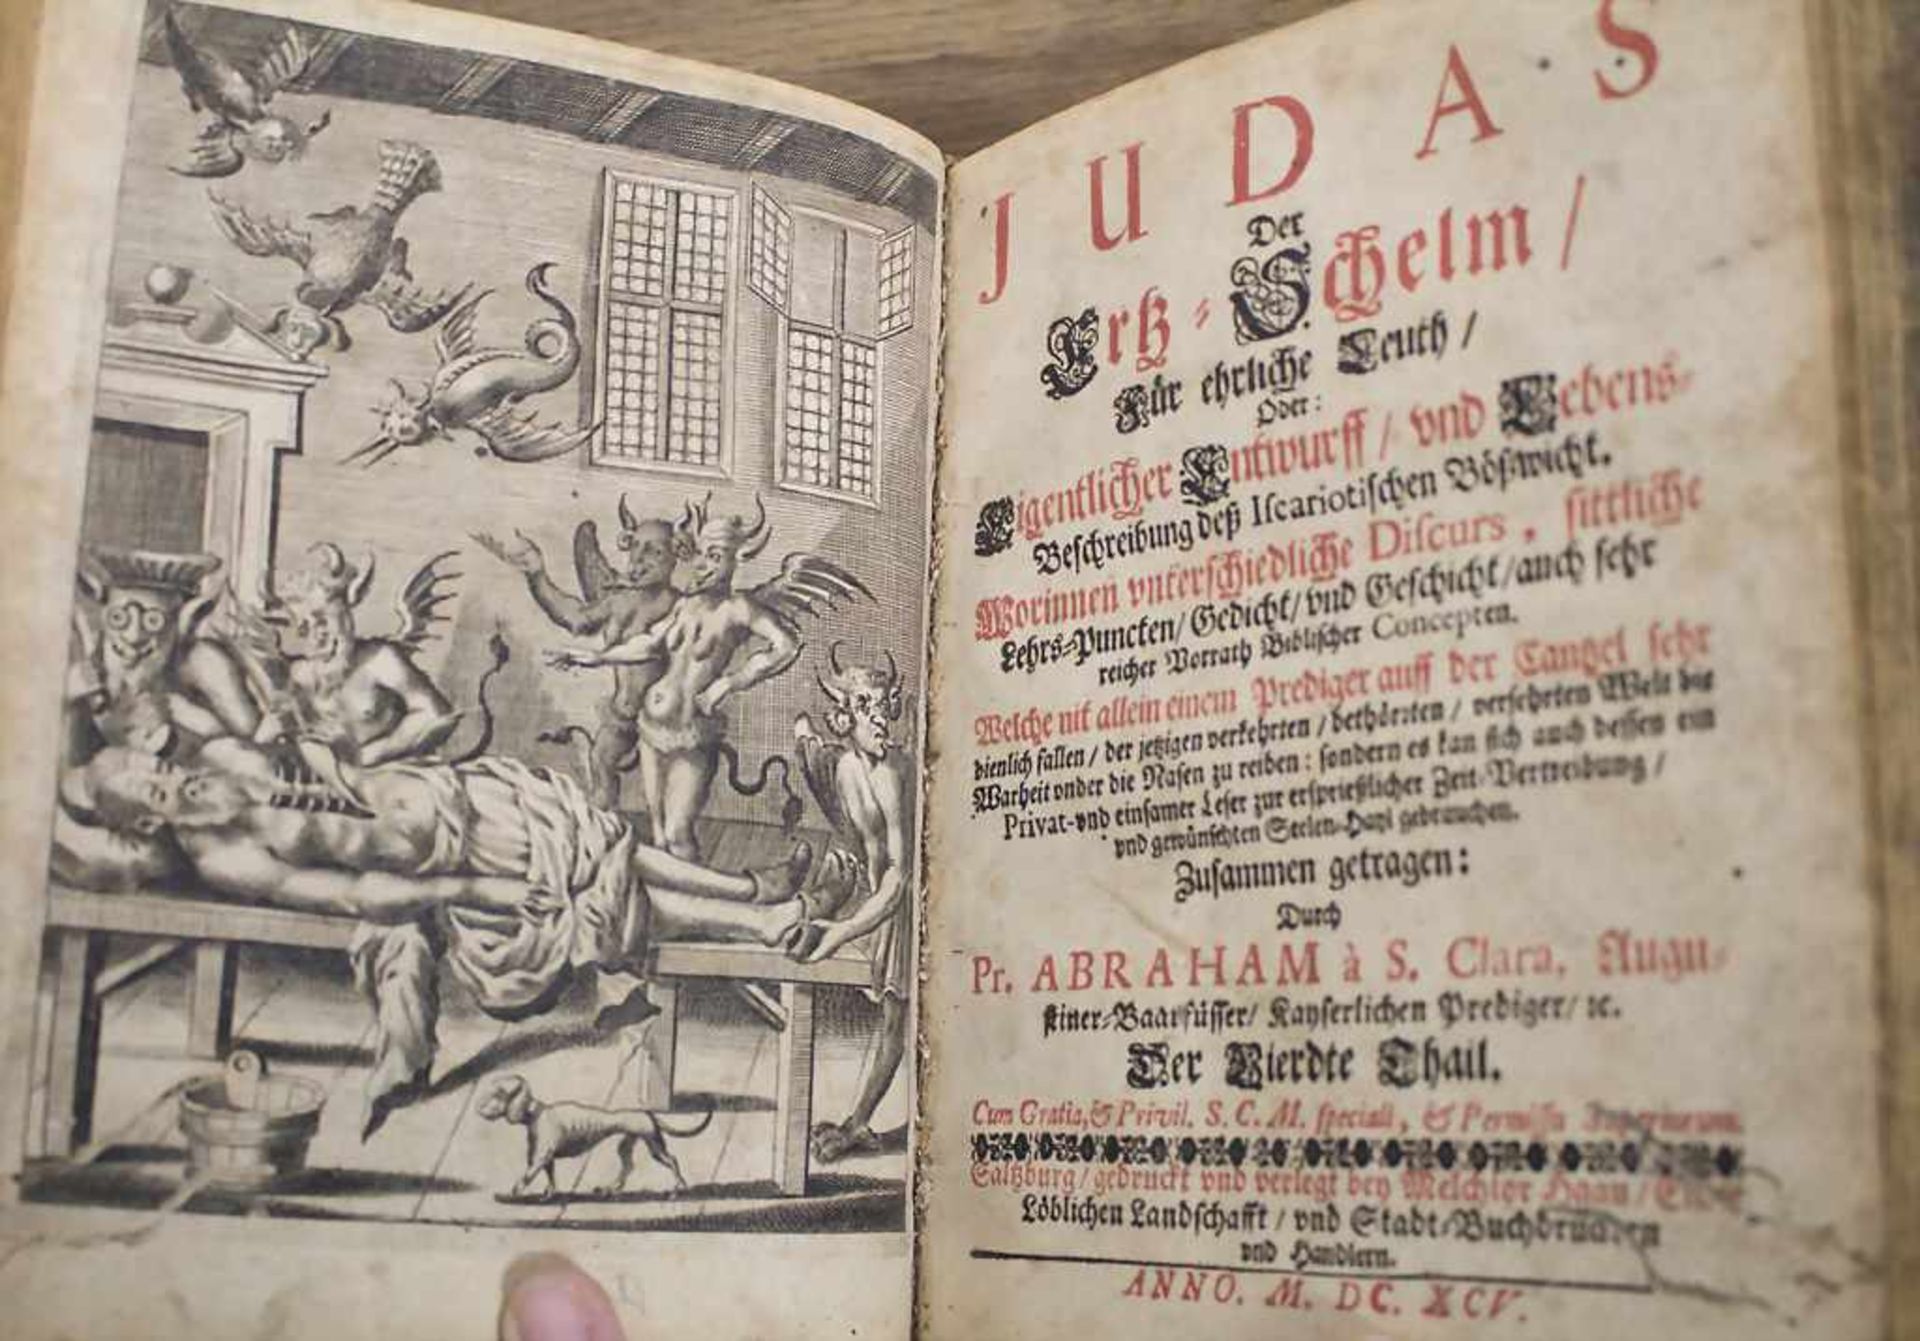 JUDAS
Der
Ertz-Schelm/
Für ehrliche Leuth/
Oder:
Eigentlicher Entwurff/ vnd Lebens-
Beschreibung deß Iscariotischen Bößwicht.
Worinnen vnterschiedliche Discurs, sittliche
Lehrs-Puncten/ Gedicht/ vnd Geschicht/ auch sehr
reicher Vorrath Biblischer Concepten.
Welche nit allein einem Prediger auff der Cantzel sehr
dienlich fallen/ der jetzigen verkehrten/ bethörzten/ versehrten Welt die
Warheit vnder die Nasen zu reiben: sondern es kan sich auch dessen ein
Privat-vnd einsamer Leser zur ersprießlicher Zeit-Vertreibung/
vnd gewünschten Seelen-Hayl gebrauchen.
Zusammen getragen:
Durch
Pr. ABRAHAM à S. Clara, Augu-
stiner-Baarfüsser/ Kayserlichen Prediger/ ꝛc.
Der Vierdte Thail.
Cum Gratia, & Privil. S. C. M. speciali, & Permissu Superiorum.
Saltzburg/ gedruckt vnd verlegt bey Melchior Haan/
Löblichen Landschafft/ vnd Stadt-Buchdruckern
vnd Handlern.
ANNO. M. DC. XCV.